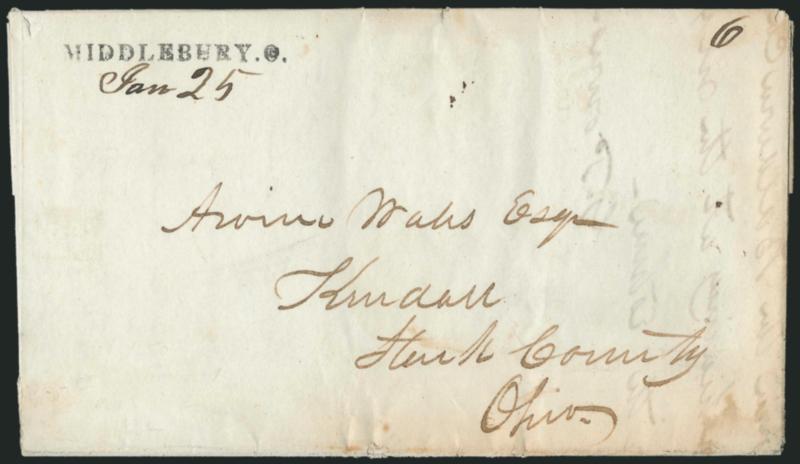 MIDDLEBURY. O.
6
Jan 25
Arvine Wales Esqr
Kendall
Stark County
Ohio